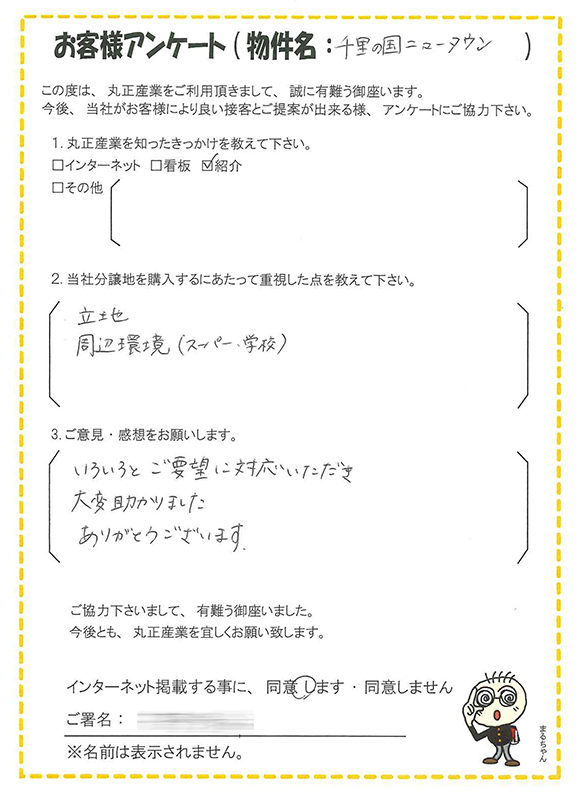 お客様アンケート(物件名：千里の国ニュータウン )
この度は、丸正産業をご利用頂きまして、誠に有難う御座います。
今後、当社がお客様により良い接客とご提案が出来る様、アンケートにご協力下さい。
1. 丸正産業を知ったきっかけを教えて下さい。
□インターネット □看板 ☑紹介
□その他
2. 当社分譲地を購入するにあたって重視した点を教えて下さい。
立地
周辺環境(スーパー、学校)
3. ご意見・感想をお願いします。
いろいろとご要望に対応いただき
大変助かりました
ありがとうございます。
ご協力下さいまして、有難う御座いました。
今後とも、丸正産業を宜しくお願い致します。
インターネット掲載する事に、同意します・同意しません
ご署名：
※名前は表示されません。
まるちゃん